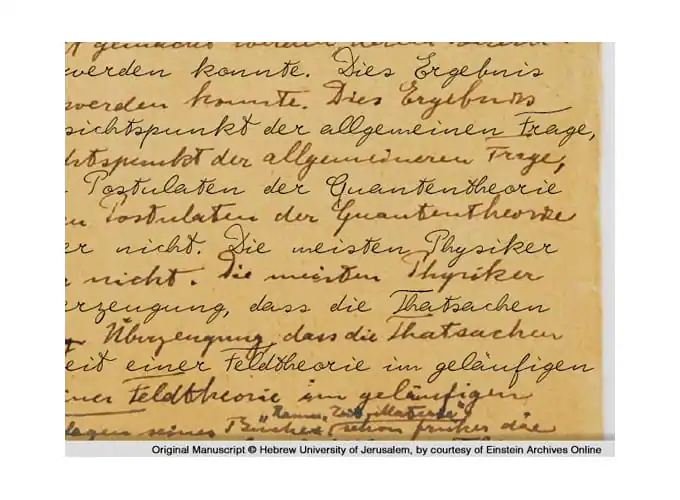 gemacht werden
werden konnte. Dies Ergebnis
werden konnte. Dies Ergebnis
sichtspunkt der allgemeinen Frage,
chtspunkt der allgemeineren Frage,
Postulaten der Quantentheorie
en Postulaten der Quantentheorie
er nicht. Die meisten Physiker
r nicht. Die meisten Physiker
erzeugung, dass die Thatsachen
Überzeugung, dass die Thatsachen
eit einer Feldtheorie im geläufigen
iner Feldtheorie im geläufigen
"Raum, Zeit, Materie"
lagen seines Buches schon früher die
Original Manuscript © Hebrew University of Jerusalem, by courtesy of Einstein Archives Online